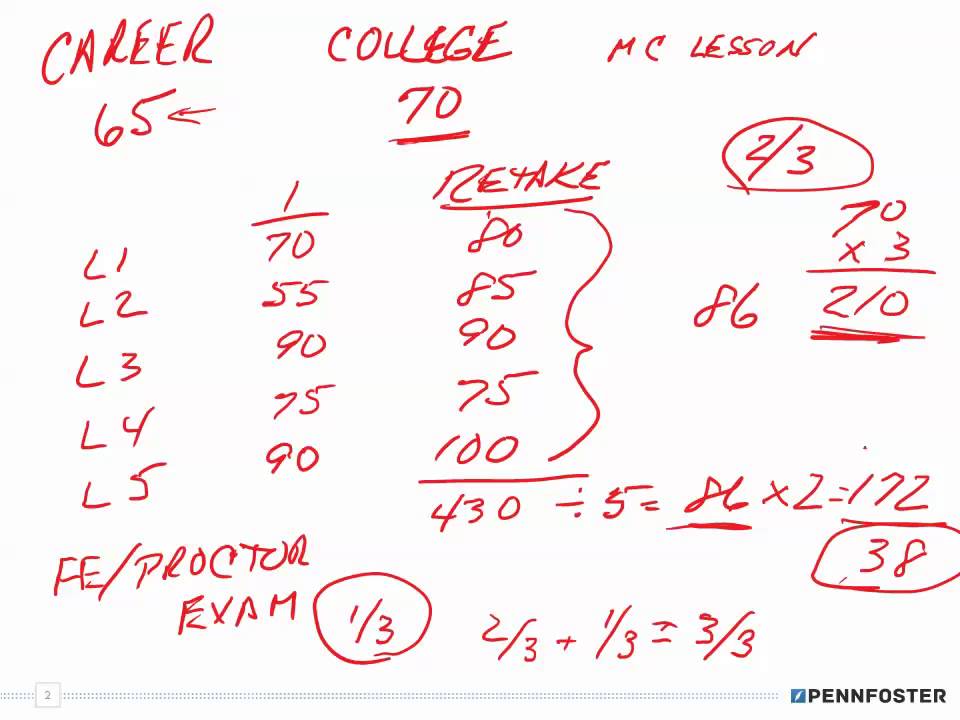 CAREER COLLEGE MC LESSON
65 ← 70
2/3
1 RETAKE
70
x 3
210
86
L1 70 80
L2 55 85
L3 90 90
L4 75 75
L5 90 100
430 ÷ 5 = 86 x 2 = 172
38
FE/PROCTOR
EXAM 1/3
2/3 + 1/3 = 3/3
2
PENNFOSTER